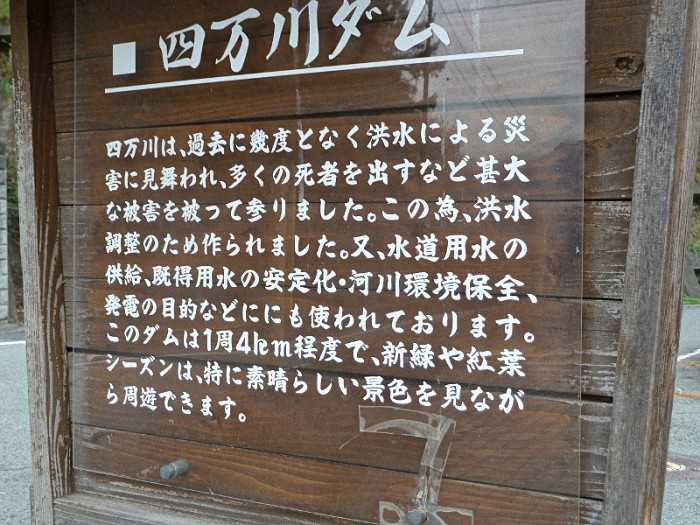 ■ 四万川ダム
四万川は、過去に幾度となく洪水による災
害に見舞われ、多くの死者を出すなど甚大
な被害を被って参りました。この為、洪水
調整のため作られました。又、水道用水の
供給、既得用水の安定化・河川環境保全、
発電の目的などにに も使われております。
このダムは1周4km程度で、新緑や紅葉
シーズンは、特に素晴らしい景色を見なが
ら周遊できます。
7